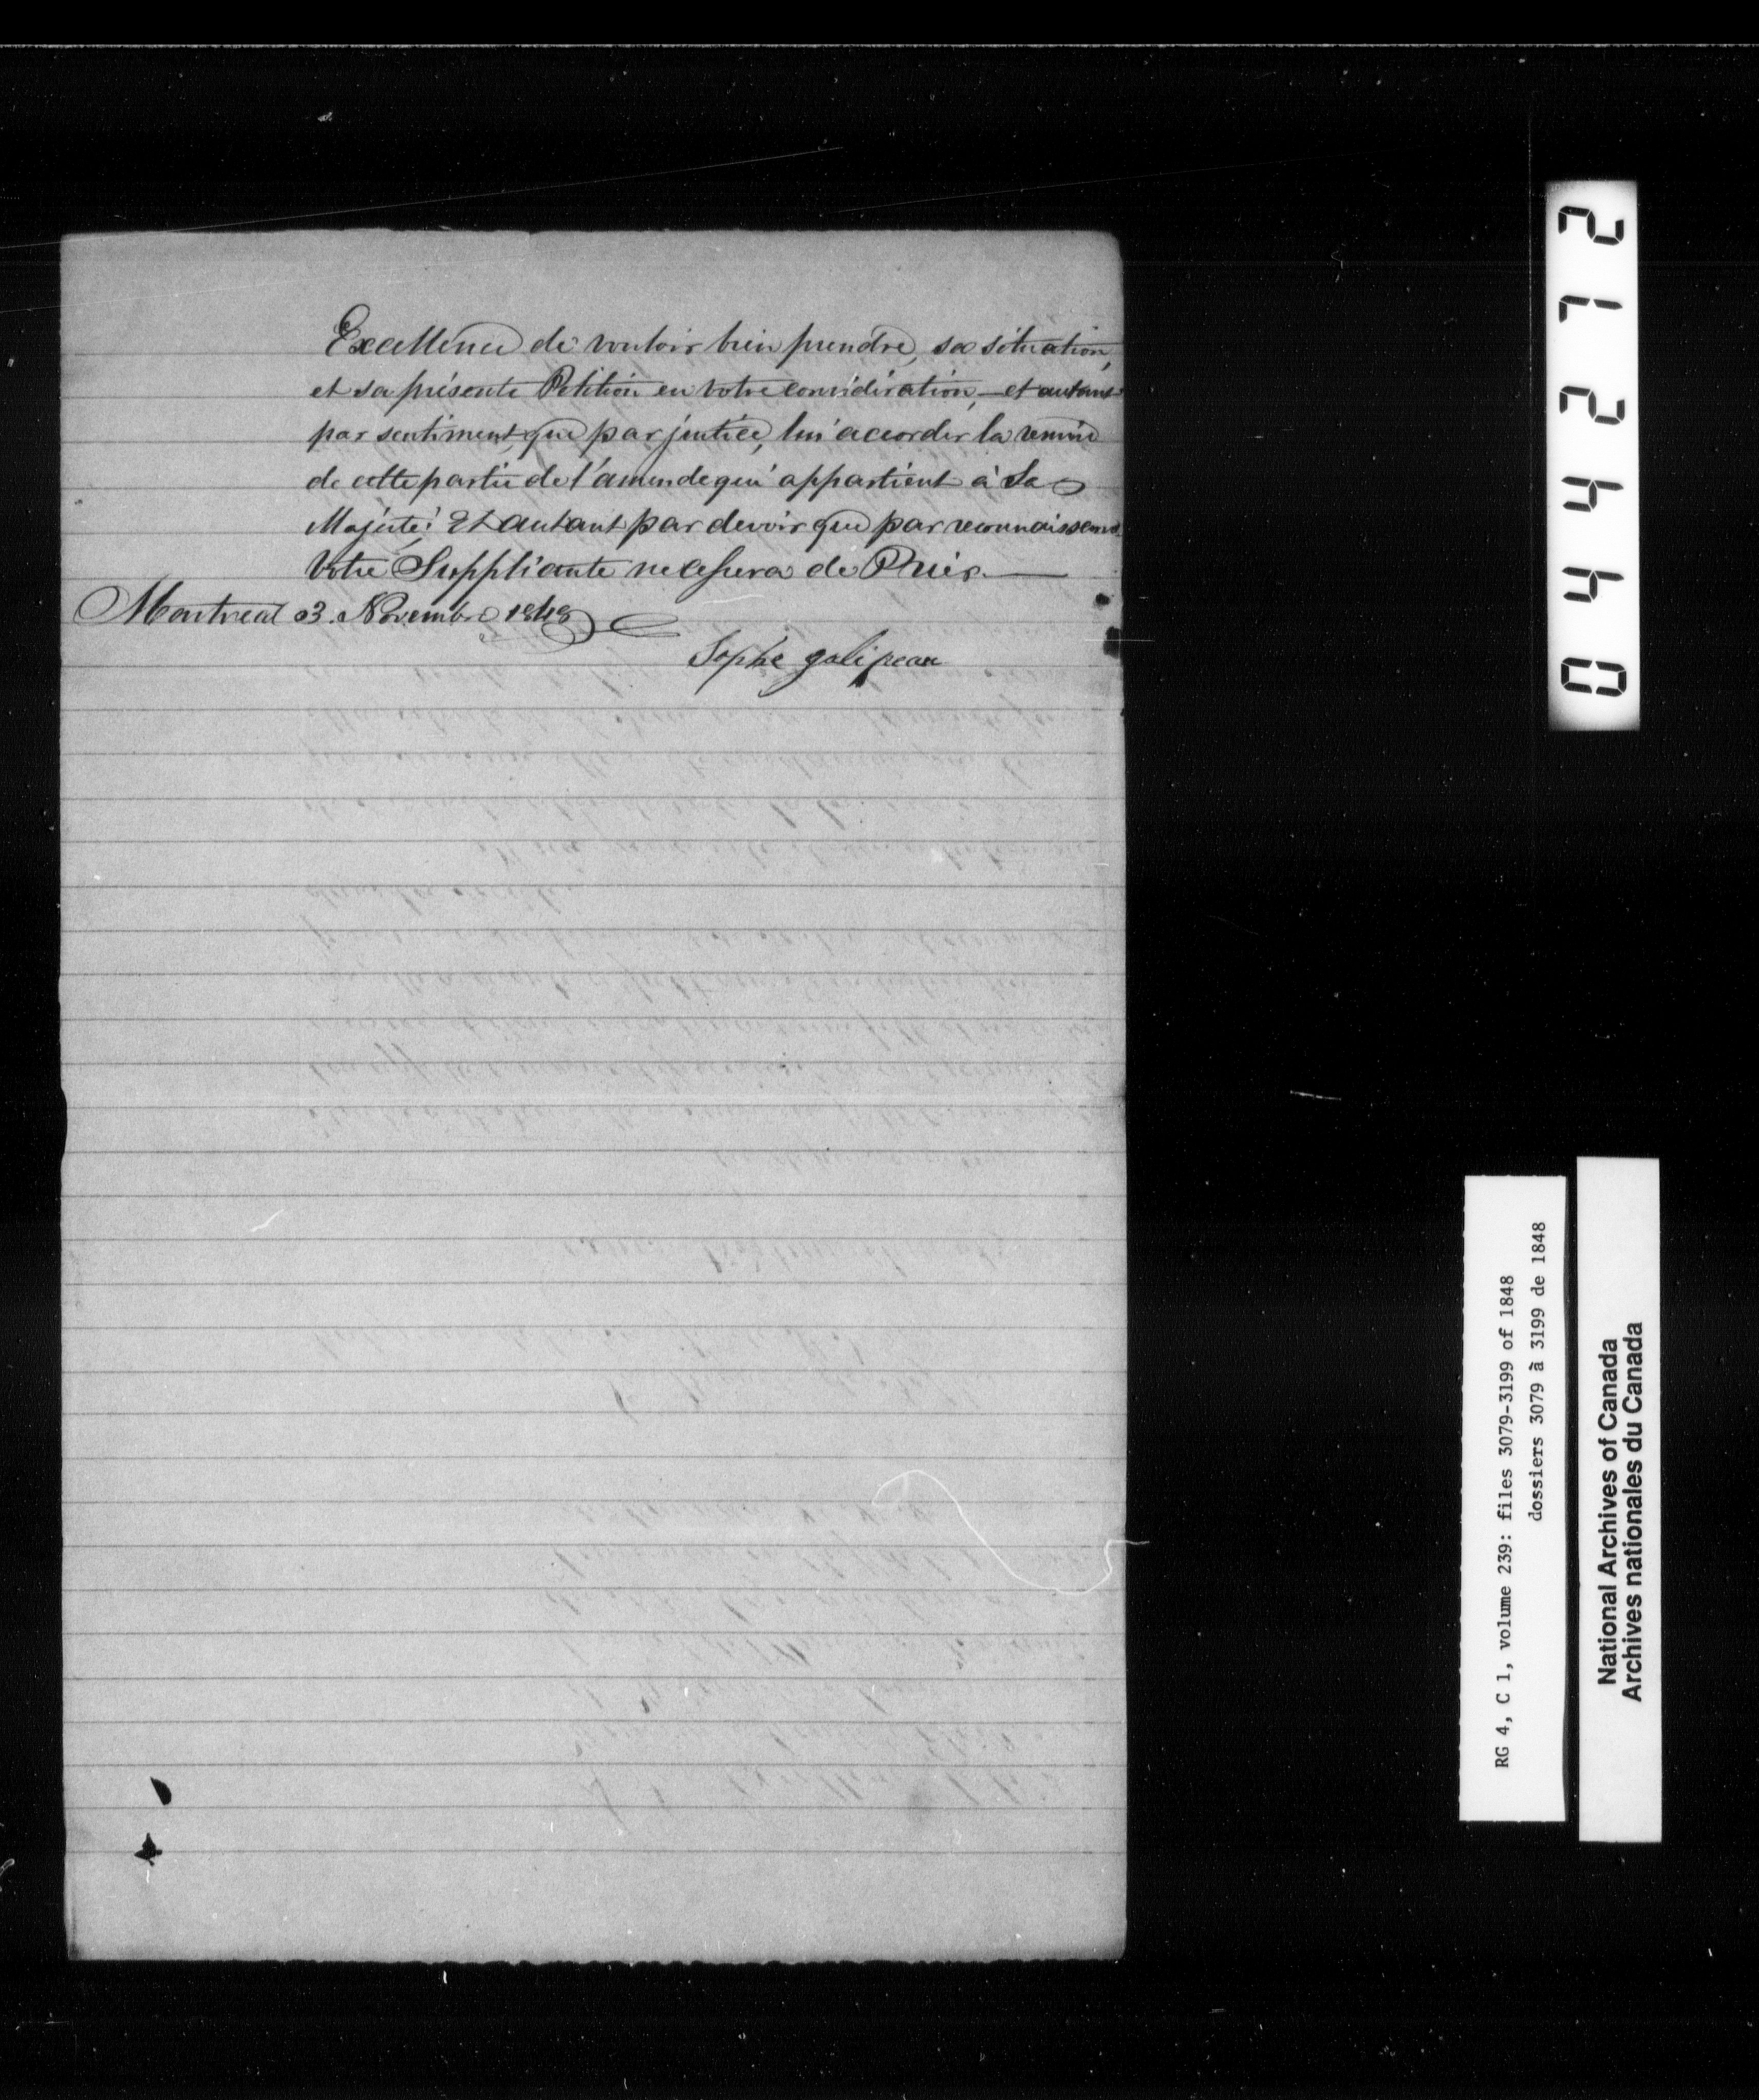 Excellence de vouloir bien prendre, sa situation,
et sa présente Petition en votre considération,—et autant
par sentiment, que par justice, lui accorder la remise
de cette partie de l'amende qui appartient à Sa
Majesté: Et autant par devoir que par reconnaissance
Votre Suppliante ne cessera de Prier.—
Montreal 3. Novembre 1848
Sophe galipeau
044212
RG 4, C 1, volume 239: files 3079-3199 of 1848
dossiers 3079 à 3199 de 1848
National Archives of Canada
Archives nationales du Canada